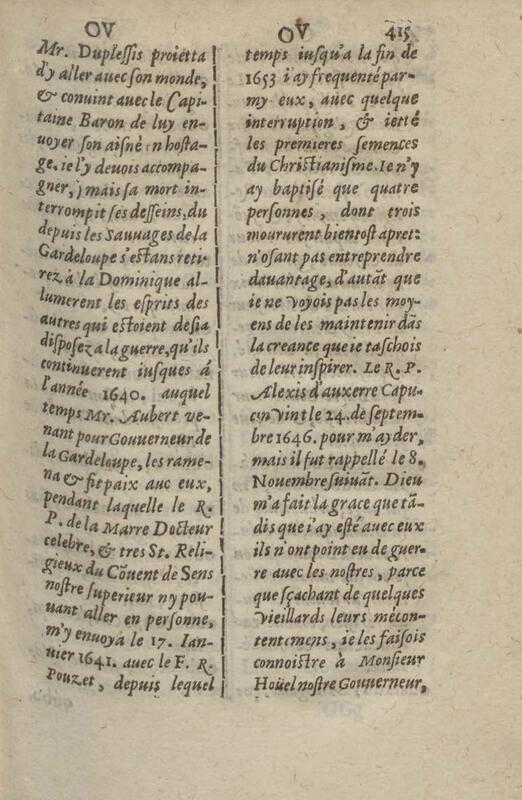 OV
Mr. Duplessis proietta
d'y aller auec son monde,
& conuint auec le Capi-
taine Baron de luy en-
uoyer son aisné en hosta-
ge. ie l'y deuois accompa-
gner, ) mais sa mort in-
terrompit ses desseins, du
depuis les Sauuages de la
Gardeloupe s'estans reti-
rez à la Dominique al-
lumerent les esprits des
autres qui estoient desia
disposez a la guerre, qu'ils
continuerent iusques á
l'année 1640. auquel
temps Mr. Aubert ve-
nant pour Gouuerneur de
la Gardeloupe, les rame-
na & fit paix auc eux,
pendant laquelle le R.
P. de la Marre Docteur
celebre, & tres St. Reli-
gieux du Cõuent de Sens
nostre superieur ny pou-
uant aller en personne,
m'y enuoya le 17. Ian-
uier 1641. auec le F. R.
Pouzet, depuis lequel
OV 415
temps iusqu'a la fin de
1653 i'ay frequenté par-
my eux, auec quelque
interruption, & ietté
les premieres semences
du Christianisme. Ie n'y
ay baptisé que quatre
personnes, dont trois
moururent bientost apret:
n'osant pas entreprendre
dauantage, d'autãt que
ie ne voyois pas les moy-
ens de les maintenir dãs
la creance que ie taschois
de leur inspirer. Le R. P.
Alexis d'auxerre Capu-
cin vint le 24. de septem-
bre 1646. pour m'ayder,
mais il fut rappellé le 8.
Nouembre suiuãt. Dieu
m'a fait la grace que tã-
dis que i'ay esté auec eux
ils n'ont point eu de guer-
re auec les nostres, parce
que sçachant de quelques
vieillards leurs mécon-
tentemens, ie les faisois
connoistre à Monsieur
Hoüel nostre Gouuerneur,